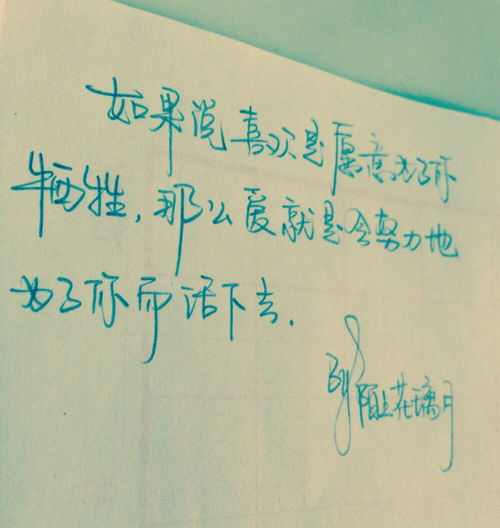 如果说喜欢是愿意为了你
牺牲,那么爱就是会努力地
为了你而活下去.
By陌上花璃月